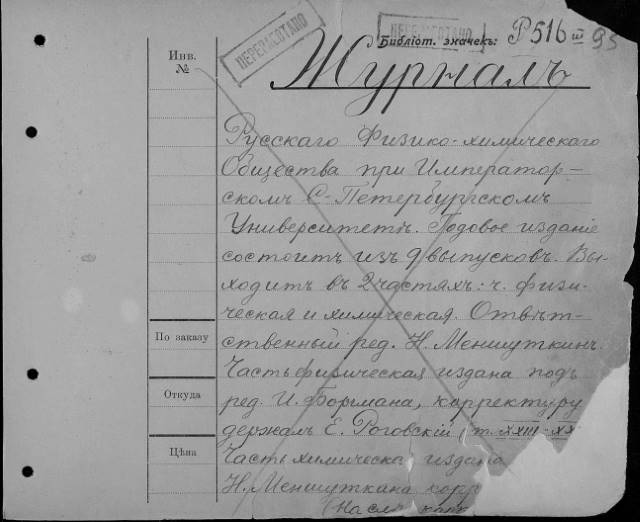 ПЕРЕИНСПЕКТИРОВАНО
Инв.
№
Библіот. значекъ: P516 III 95
Журналъ
Русскаго Физико-химическаго
Общества при Император-
скомъ С-Петербургскомъ
Университетѣ. Годовое изданіе
состоитъ изъ 9 выпусковъ. Вы-
ходитъ въ 2 частяхъ: ч. физи-
ческая и химическая. Отвѣт-
По заказу
ственный ред. Н. Меншуткинъ
Часть физическая издана подъ
Откуда
ред. И. Боргмана, корректуру
держалъ Е. Роговскій (т. XXIII-XX
Цѣна
Часть химическа издана
Н. Меншуткина корр
(На сл